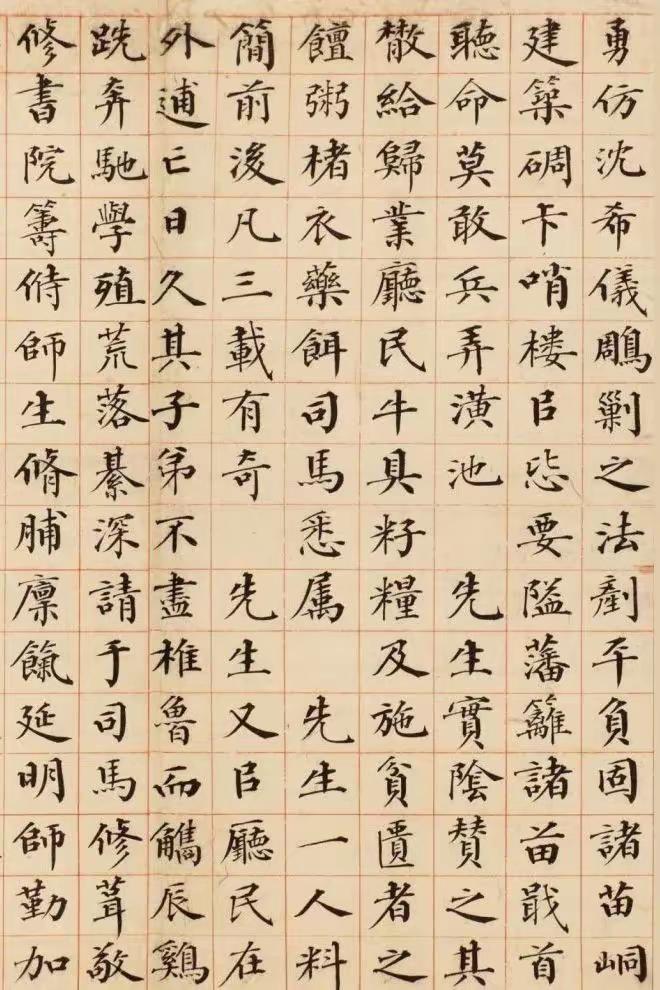 勇仿沈希儀鵰剿之法剷平負固諸苗峒
建築碉卡哨樓㠯毖要隘藩籬諸苗戢首
聽命莫敢兵弄潢池 先生實陰贊之其
散給歸業廳民牛具籽糧及施貧匱者之
饘粥楮衣藥餌司馬悉属 先生一人料
簡前後凡三載有奇 先生又㠯廳民在
外逋亡日久其子弟不盡椎魯而觿辰鷄
跣奔馳學殖荒落綦深請于司馬修葺敬
修書院籌偫師生脩脯廩餼延明師勤加